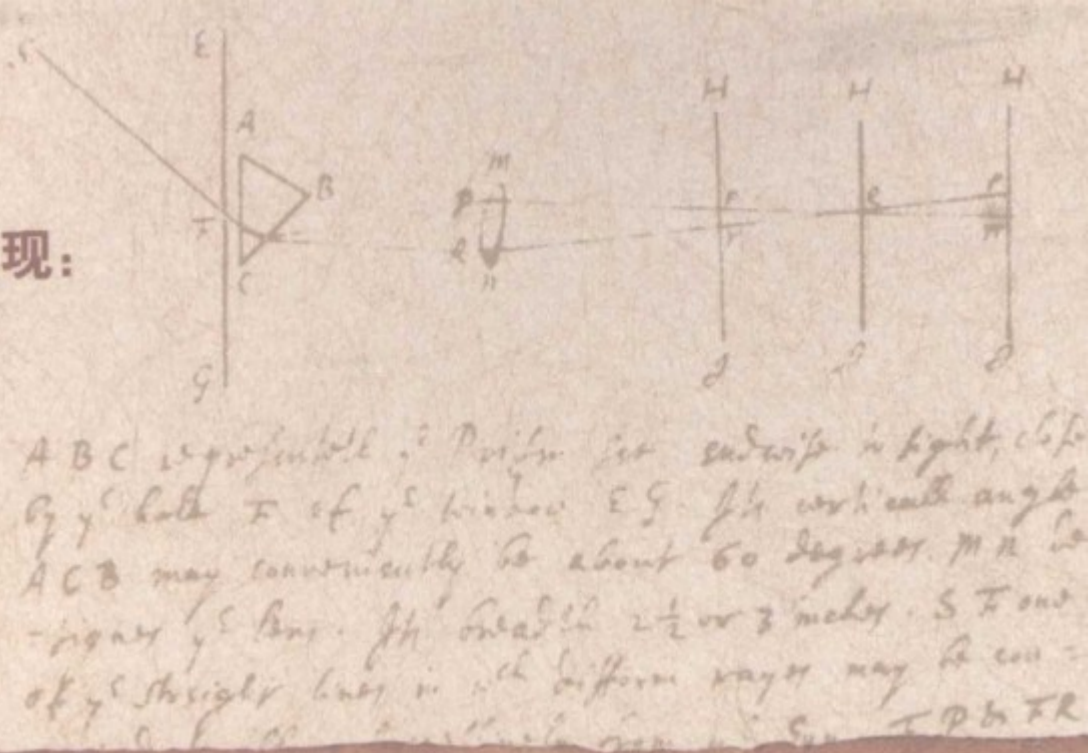 S E H H H
A
B M
现： F P P R P
C R T
N
G J J J
A B C representeth yᵉ Prism set endwise to sight, close
by yᵉ hole F of yᵉ window E G. Its verticall angle
A C B may conveniently be about 60 degrees. M N de
-signes yᵉ lens. Its breadth 2½ or 3 inches. S F one
of yᵉ streight lines in wᶜʰ difform rays may be con =
F P & F R